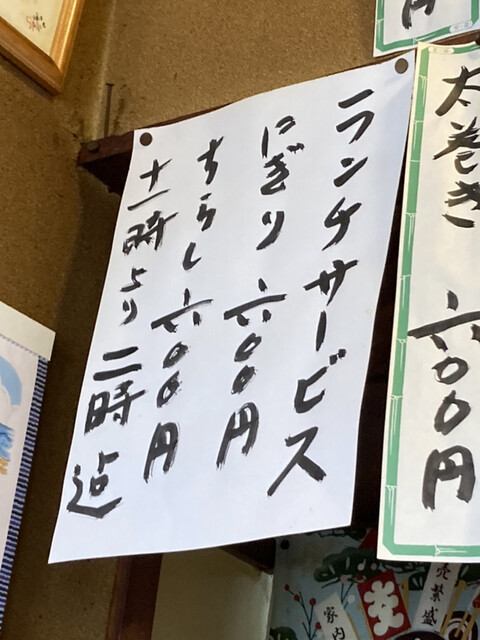 太巻き 六〇〇円
ランチサービス
にぎり 六〇〇円
ちらし 六〇〇円
十一時より二時迄
円
売繁盛
笑
家内